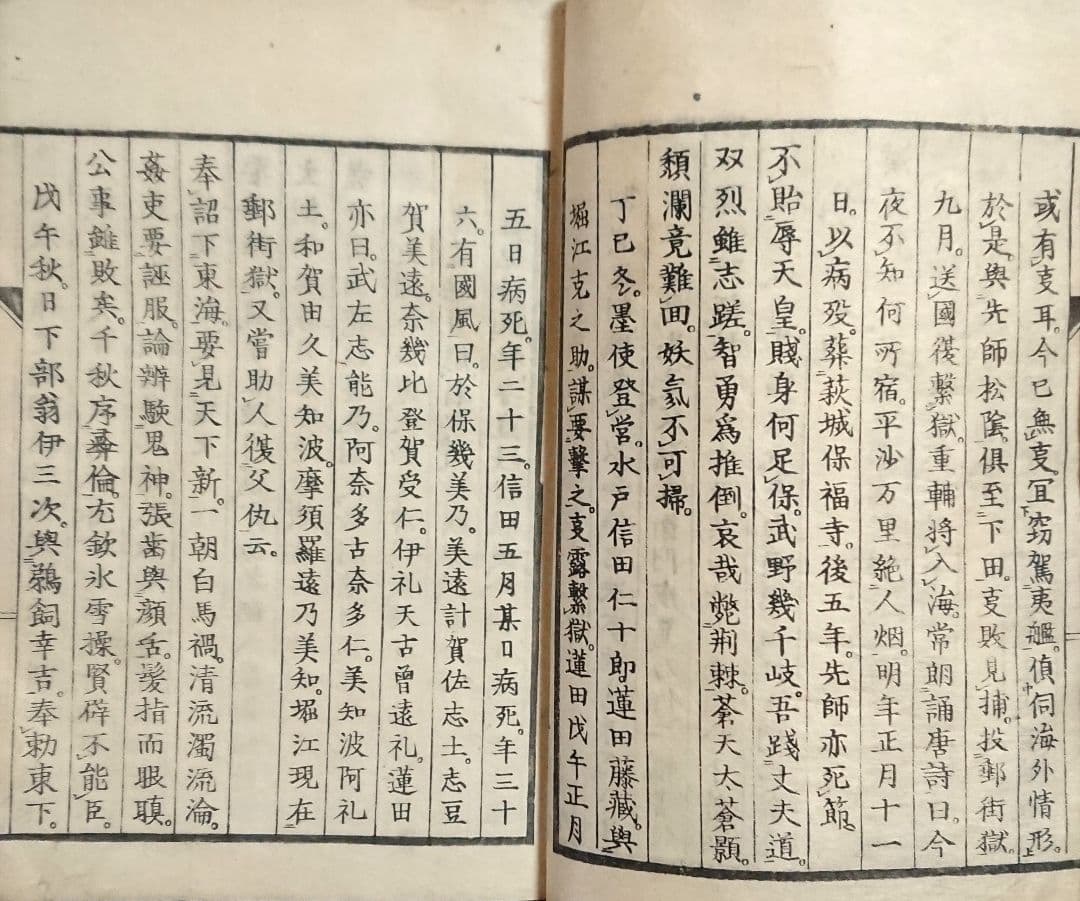 或有㕝耳。今已無㕝。冝窃駕夷艦。偵伺海外情形。
於是。與先師松陰。俱至下田。㕝敗見捕。投郵街獄。
九月。送國復繫獄。重輔將入海。常朗誦唐詩曰。今
夜不知何所宿。平沙万里絶人烟。明年正月十一
日。以病殁。葬萩城保福寺。後五年。先師亦死節。
不貽辱天皇。賤身何足保。武野幾千岐。吾踐丈夫道。
双烈雖志蹉。智勇爲推倒。哀哉斃荆棘。蒼天太蒼顥。
頽瀾竟難回。妖氛不可掃。
丁巳冬。墨使登營。水戸信田仁十郎。蓮田藤藏。與
堀江克之助。謀要擊之。㕝露繫獄。蓮田戊午正月
五日病死。年二十三。信田五月某日病死。年三十
六。有國風曰。於保幾美乃。美遠計賀佐志土。志豆
賀美遠。奈幾比登賀受仁。伊礼天古曾遠礼。蓮田
亦曰。武左志能乃。阿奈多古奈多仁。美知波阿礼
土。和賀由久美知波。摩須羅遠乃美知。堀江現在
郵街獄。又嘗助人復父仇云。
奉詔下東海。要見天下新。一朝白馬禍。清流濁流淪。
姦吏要誣服。論辧駭鬼神。張齒與顔舌。髮指而眼瞋。
公事雖敗矣。千秋序彞倫。尤欽氷雪操。賢辟不能臣。
戊午秋。日下部翁伊三次。與鵜飼幸吉。奉勅東下。